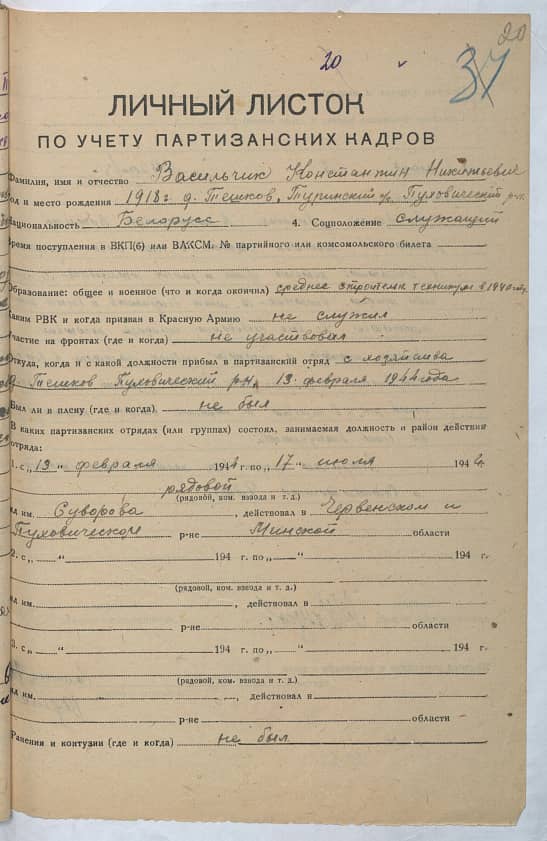 20
20
37
ЛИЧНЫЙ ЛИСТОК
ПО УЧЕТУ ПАРТИЗАНСКИХ КАДРОВ
Фамилия, имя и отчество Васильчик Константин Никитьевич
од и место рождения 1918 г д. Тешков, Туринский с/с Пуховический р-н.
Национальность Белорусс 4. Соцположение служащий
Время поступления в ВКП(б) или ВЛКСМ, № партийного или комсомольского билета
Образование: общее и военное (что и когда окончил) среднее строительн техникум в 1940 году
Каким РВК и когда призван в Красную Армию не служил
Участие на фронтах (где и когда) не участвовал
Откуда, когда и с какой должности прибыл в партизанский отряд с хозяйства
д. Тешков Пуховический р-н, 13 февраля 1944 года
Был ли в плену (где и когда) не был
В каких партизанских отрядах (или группах) состоял, занимаемая должность и район действия
отряда:
1. с „13“ февраля 1944 г. по „17“ июля 1944 г.
рядовой
(рядовой, ком. взвода и т. д.)
яд им. Суворова, действовал в Червенском и
Пуховическом р-не Минской области
2. с „ “ 194 г. по „ “ 194 г.
(рядовой, ком. взвода и т. д.)
яд им. , действовал в
р-не области
3. с „ “ 194 г. по „ “ 194 г.
(рядовой, ком. взвода и т. д.)
яд им. , действовал в
р-не области
Ранения и контузии (где и когда) не был